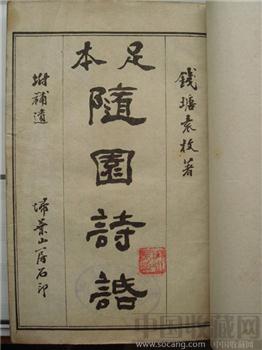 足本
錢塘袁枚著
隨園詩話
附補遺
埽葉山房石印
www.socang.com
中国收藏网